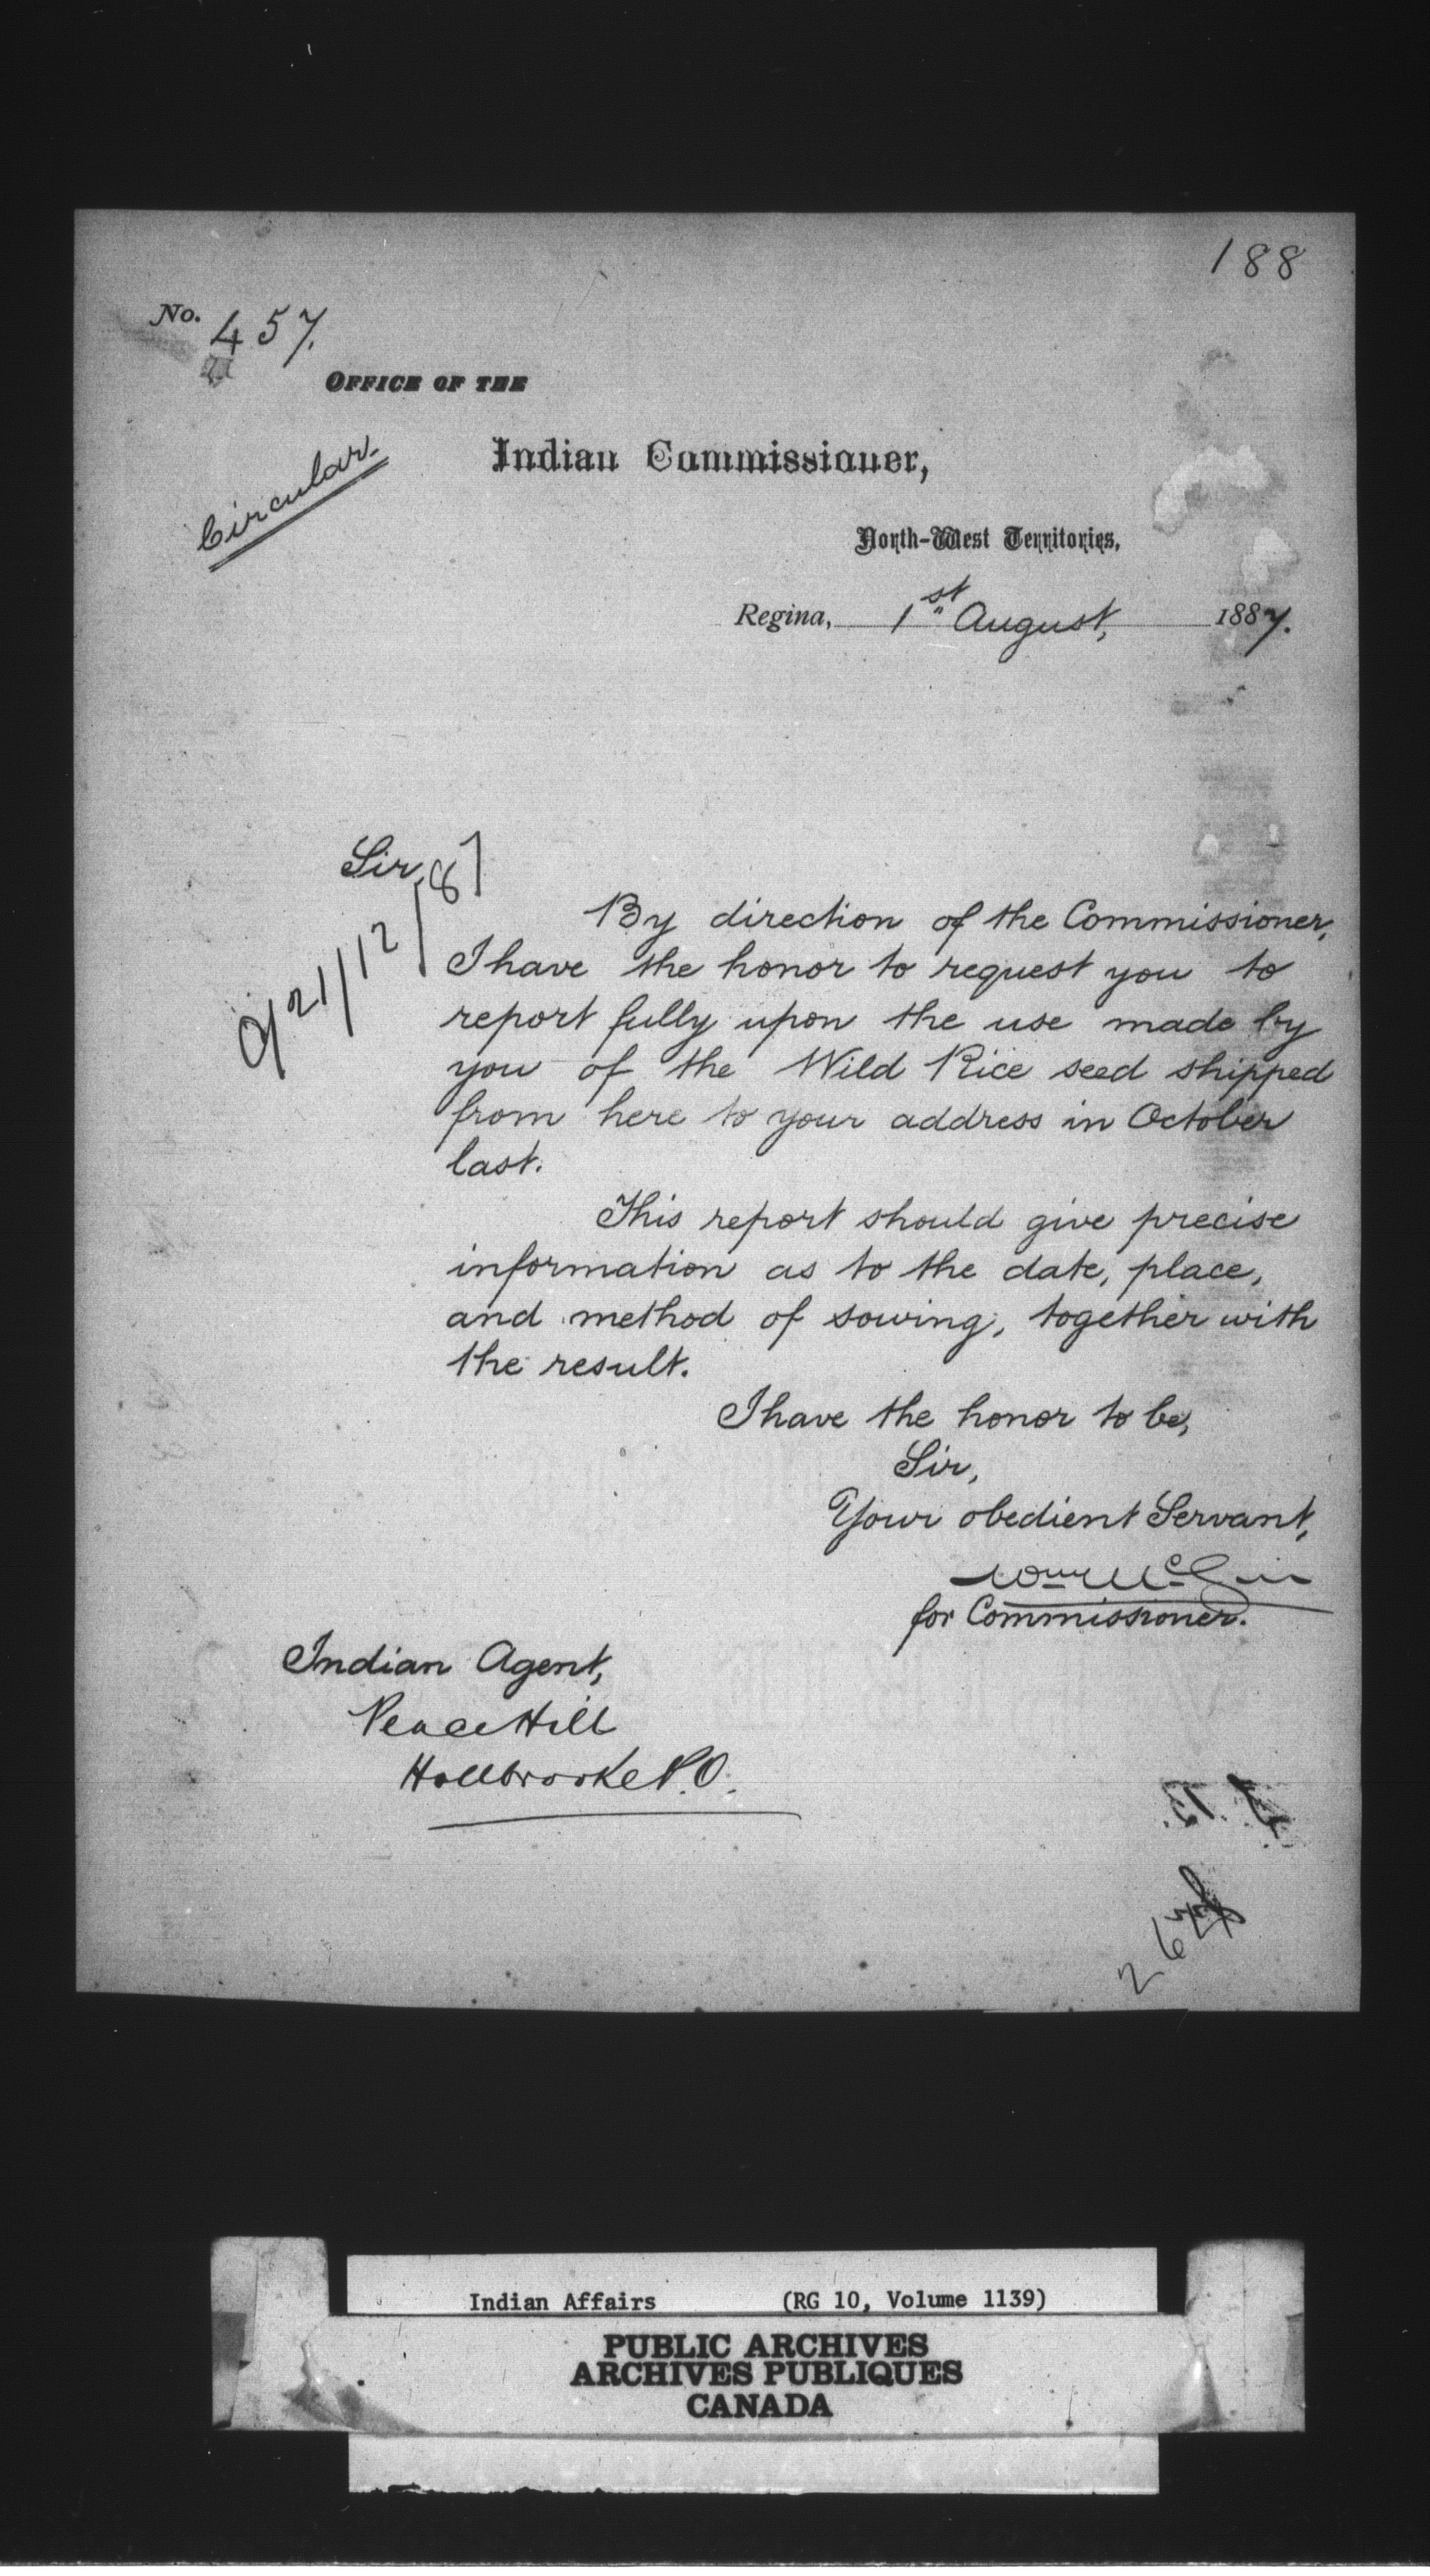 188
No. 457.
OFFICE OF THE
Circular.
Indian Commissioner,
North-West Territories,
Regina, 1st August, 1887.
Sir,
21/12/87
By direction of the Commissioner,
I have the honor to request you to
report fully upon the use made by
you of the Wild Rice seed shipped
from here to your address in October
last.
This report should give precise
information as to the date, place,
and method of sowing, together with
the result.
I have the honor to be,
Sir,
Your obedient Servant,
Wm McGirr
for Commissioner.
Indian Agent,
Peace Hill
Hollbrooke P.O.
Indian Affairs (RG 10, Volume 1139)
PUBLIC ARCHIVES
ARCHIVES PUBLIQUES
CANADA